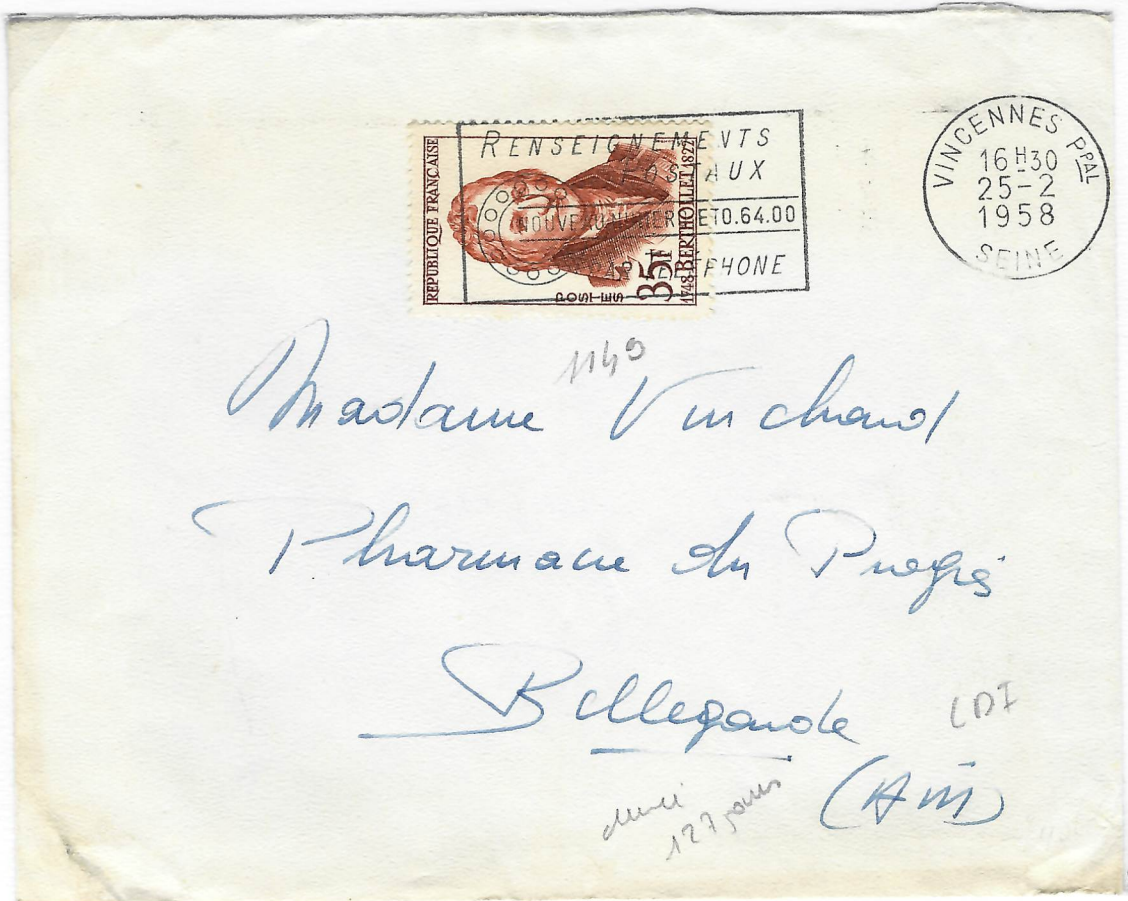 RENSEIGNEMENTS
POSTAUX
NOUVEAU NUMERO ET0.64.00
PAR TELEPHONE
REPUBLIQUE FRANÇAISE
POSTES
35F
1748-BERTHOLLET-1822
VINCENNES PPAL
16H30
25-2
1958
SEINE
1149
Madame Vinchand
Pharmacie du Progrès
Bellegarde
(Ain)
127 jours